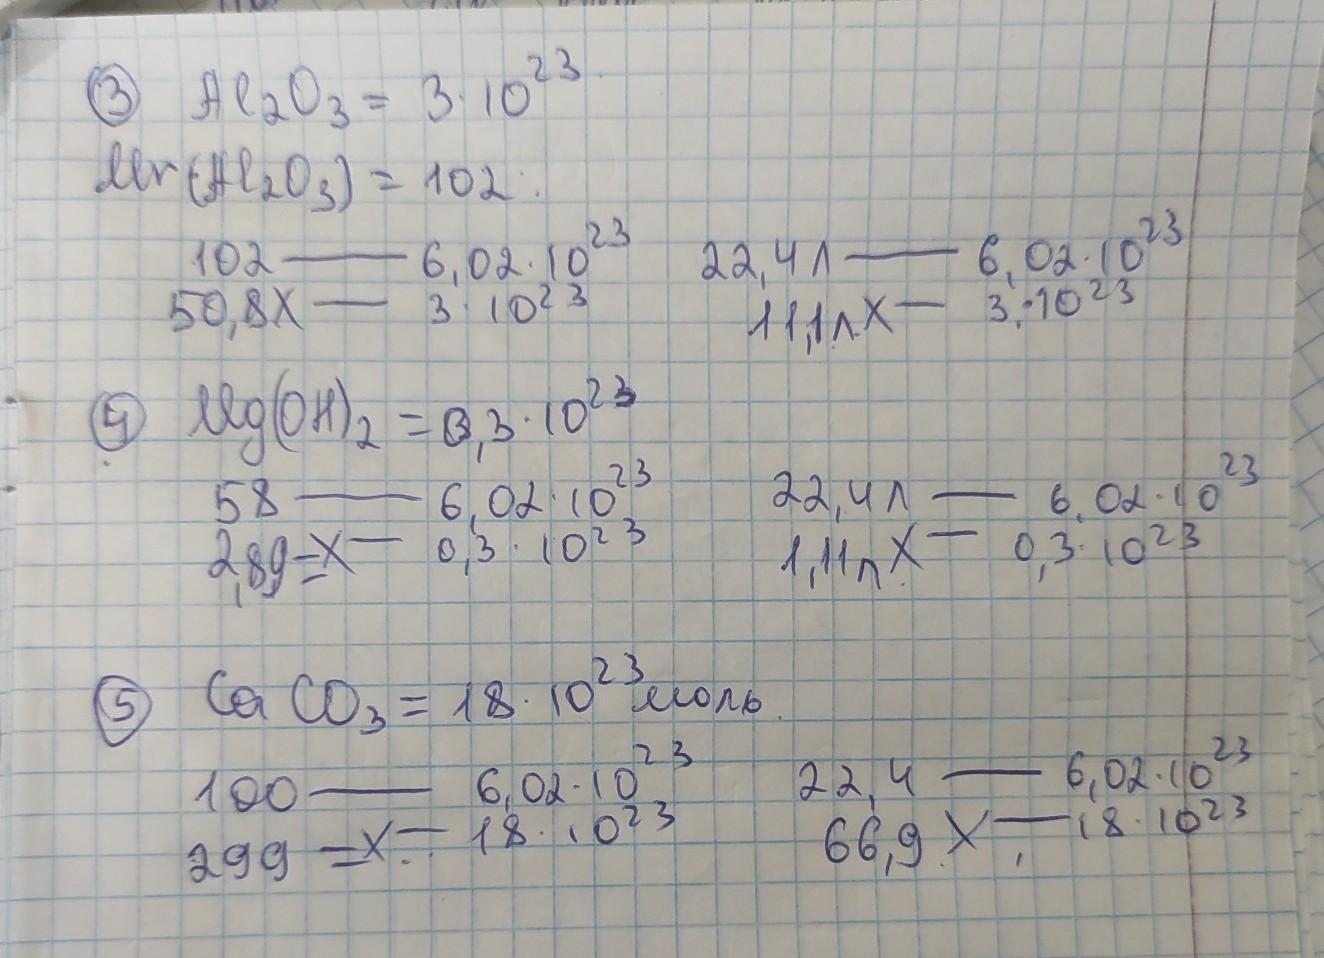 ③ Al₂O₃ = 3·10²³
Mr(Al₂O₃) = 102.
102 — 6,02·10²³ 22,4л — 6,02·10²³
50,8X — 3·10²³ 11,1л X — 3,·10²³
④ Mg(OH)₂ = 0,3·10²³
58 — 6,02·10²³ 22,4л — 6,02·10²³
2,89=X — 0,3·10²³ 1,11л X — 0,3·10²³
⑤ CaCO₃ = 18·10²³ моль.
100 — 6,02·10²³ 22,4 — 6,02·10²³
299 =X — 18·10²³ 66,9 X — 18·10²³